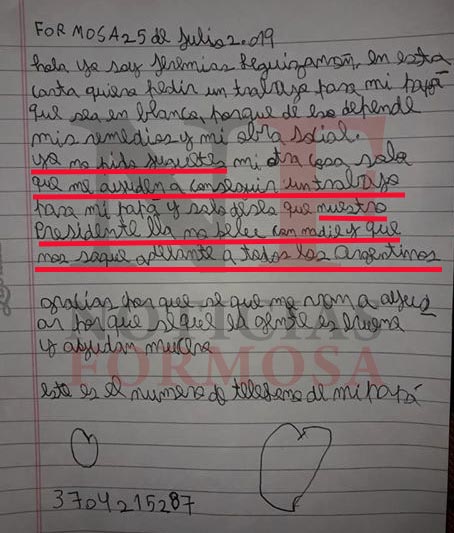 FORMOSA 25 de Julio 2.019
hola yo soy Jeremias Leguizamon, en esta
carta quiero pedir un trabajo para mi papá
que sea en blanco, porque de eso depende
mis remedios y mi obra social.
yo no pido juguetes mi otra cosa solo
que me ayuden a conseguir un trabajo
para mi papá y solo deseo que nuestro
Presidente lla no pelee con nadie y que
nos saque adelante a todos los argentinos
gracias por que se que me van a ayud
ar por que se que la gente es buena
y ayudan mucho
este es el numero de telefono de mi papá
3704215287
NF
NOTICIAS
FORMOSA